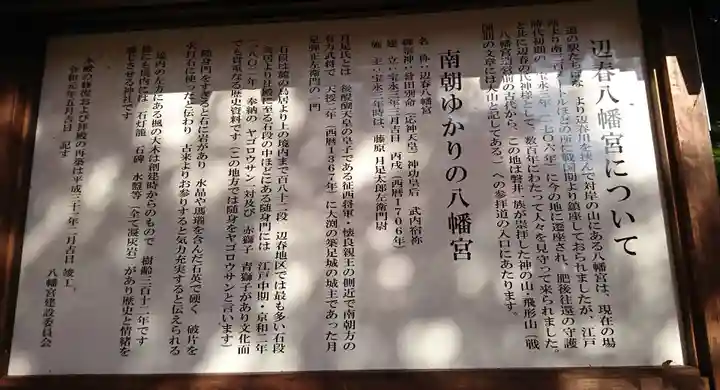 辺春八幡宮について
道の駅たちばな より辺春川を挟んで対岸の山にある八幡宮は、現在の場
所より南二百メートルほどの所に戦国期より鎮座しておられましたが、江戸
時代初期の 宝永三年(一七〇六年)に今の地に遷座され、肥後往還の守護
と共に辺春の氏神様として 数百年にわたって人々を見守って来られました。
八幡宮遷宮前の古代から、この地は磐井一族が崇拝した神の山・飛形山(戦
国期の文章には大山と記してある)への参拝道の入口にあたります。
名 称・辺春八幡宮
御祭神・誉田別命(応神天皇)神功皇后 武内宿祢
建 立・宝永三年二月吉日 丙戌(西暦1706年)
施 主・宝永三年時は 藤原 月足太郎左衛門尉
南朝ゆかりの八幡宮
月足氏とは 後醍醐天皇の皇子である征西将軍・懐良親王の側近で南朝方の
有力武将で 天授二年(西暦1367年)に大渕の築足城の城主であった月
足弾正左衛門の一門
石段は麓の鳥居より上の境内まで百八十三段 辺春地区では最も多い石段
鳥居より拝殿に至る石段の中ほどにある随身門には 江戸中期・享和二年
(一八〇二年)奉納の ヤゴロウサン一対及び 赤獅子 青獅子があり文化面
でも貴重なる歴史資料です(この地方では随身をヤゴロウサンと言います)
随身門をすぎると右に岩があり 水晶や瑪瑙を含んだ石英で硬く 破片を
火打石に使ったと伝わり 古来よりお参りすると気力充実すると伝えられる
境内の左方にある楓の大木は創建時からのもので 樹齢三百十二年です
他にも境内には 石灯籠 石碑 水盤等(全て凝灰岩)があり歴史と情緒を
感じさせる神社です
本殿の修復および拝殿の再築は平成三十一年二月吉日 竣工。
令和元年五月吉日 記す
八幡宮建設委員会